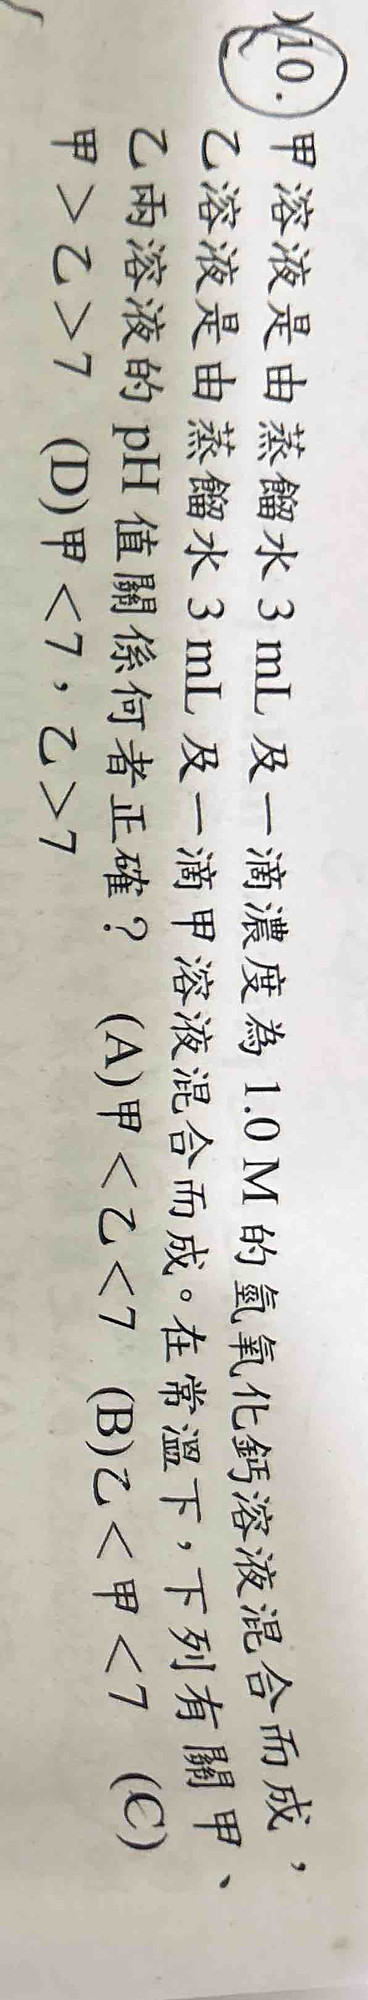 10. 甲溶液是由蒸餾水 3 mL 及一滴濃度為 1.0 M 的氫氧化鈣溶液混合而成，
乙溶液是由蒸餾水 3 mL 及一滴甲溶液混合而成。在常溫下，下列有關甲、
乙兩溶液的 pH 值關係何者正確？ (A)甲＜乙＜7 (B)乙＜甲＜7 (C)
甲＞乙＞7 (D)甲＜7，乙＞7